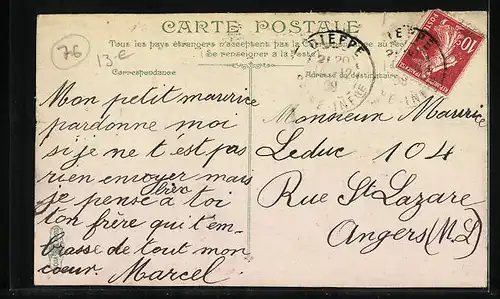 76
13.-€
CARTE POSTALE
Tous les pays étrangers n'acceptent pas la Correspondance au
(Se renseigner à la Poste)
DIEPPE
DIEPPE
10
Correspondance
Adresse du destinataire
Mon petit maurice
pardonne moi
si je ne t est pas
rien envoyer mais
bien
je pense à toi
ton frère qui t'em-
brasse de tout mon
coeur. Marcel
Monsieur Maurice
Leduc 104
Rue St Lazare
Angers (M.L)